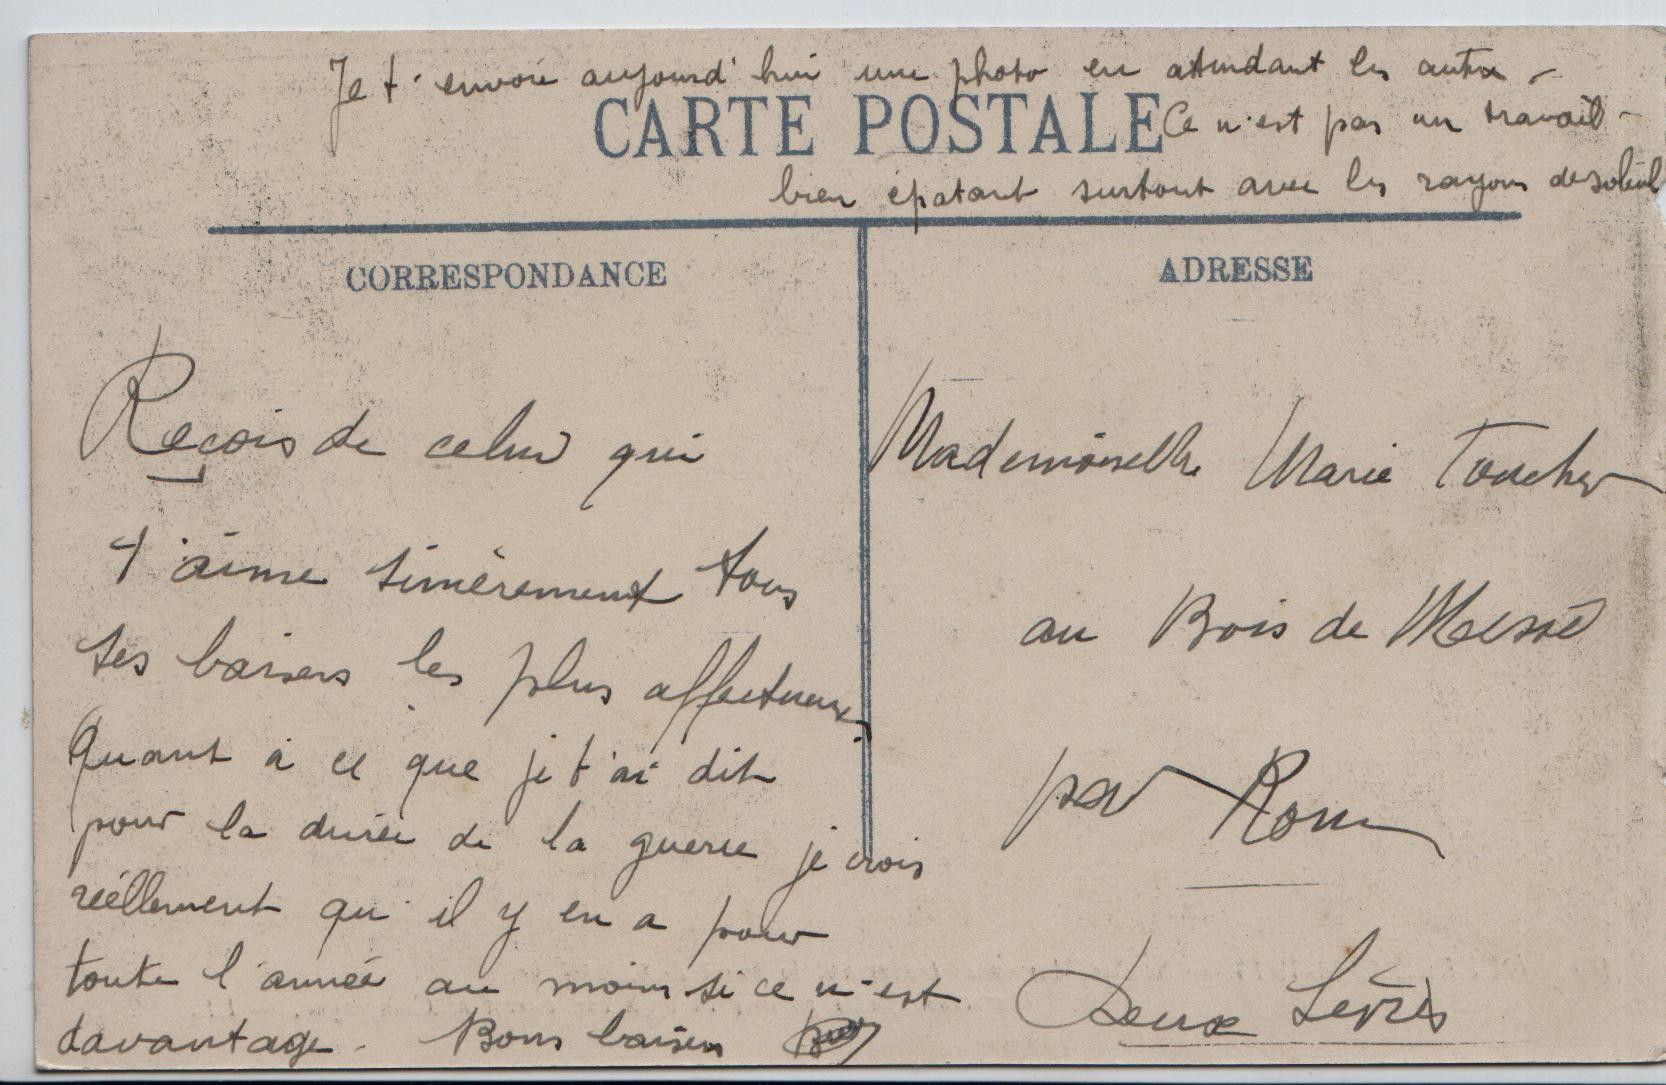 Je t'envoie aujourd'hui une photo en attendant les autres -
CARTE POSTALE
Ce n'est pas un travail -
bien épatant surtout avec les rayons de soleil
CORRESPONDANCE
Reçois de celui qui
t'aime sincèrement tous
ses baisers les plus affectueux
Quant à ce que je t'ai dit
pour la durée de la guerre je crois
réellement qu'il y en a pour
toute l'année au moins si ce n'est
davantage. Bons baisers
ADRESSE
Mademoiselle Marie
au Bois de Messé
par Rom
Deux Sèvres